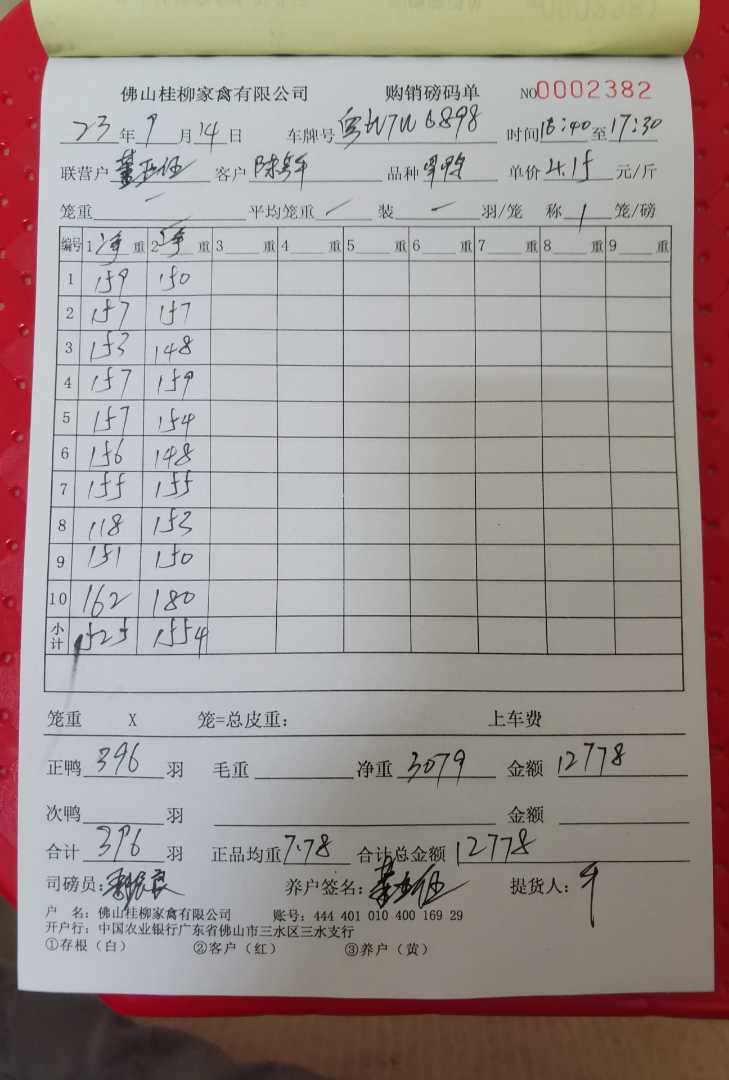 佛山桂柳家禽有限公司 购销磅码单 NO0002382
23年9月14日 车牌号 粤W7W6898 时间16:40至17:30
联营户 客户 陈 品种 单价 4.15 元/斤
笼重 一 平均笼重 / 装 一 羽/笼 称 1 笼/磅
编号 1 净 重 2 净 重 3 重 4 重 5 重 6 重 7 重 8 重 9 重
1 159 150
2 157 157
3 153 148
4 157 159
5 157 154
6 156 148
7 155 155
8 118 153
9 151 150
10 162 180
小计 1525 1554
笼重 X 笼=总皮重： 上车费
正鸭 396 羽 毛重 净重 3079 金额 12778
次鸭 羽 金额
合计 396 羽 正品均重 7.78 合计总金额 12778
司磅员： 养户签名： 提货人：
户 名：佛山桂柳家禽有限公司 账号：444 401 010 400 169 29
开户行：中国农业银行广东省佛山市三水区三水支行
①存根（白） ②客户（红） ③养户（黄）